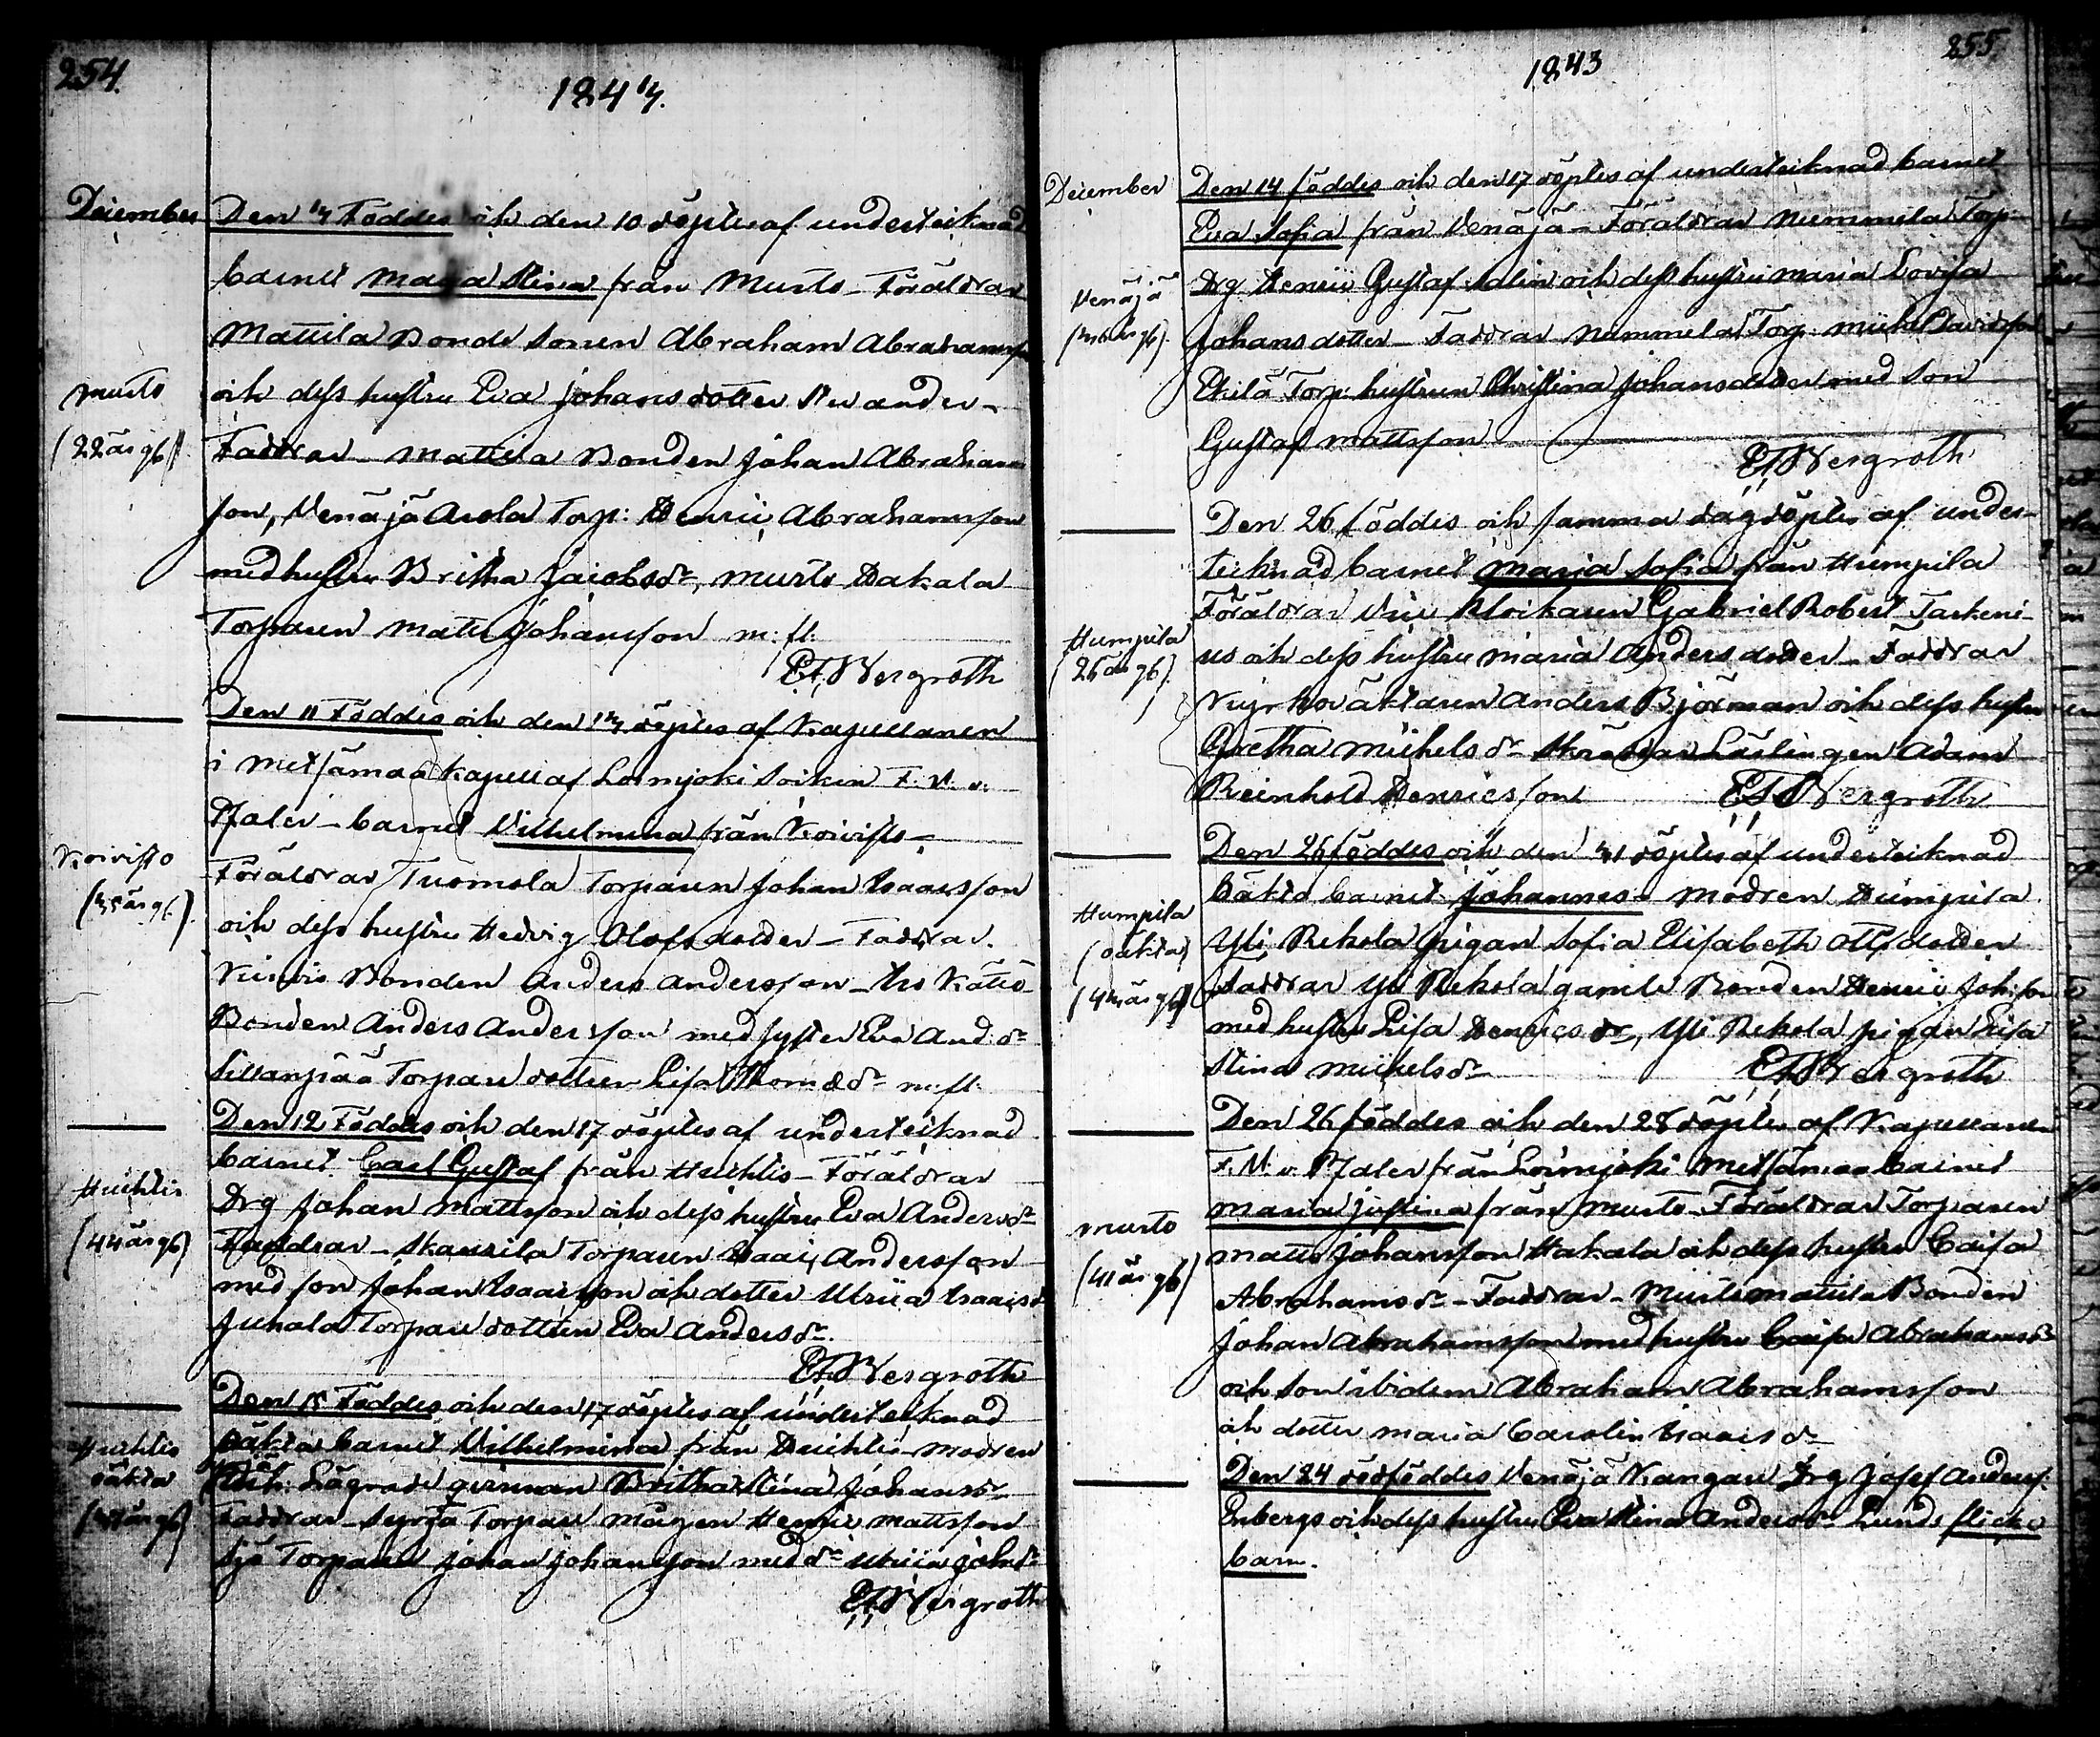 254.
1843.
December
Den 3 Föddes och den 10 döptes af undertecknad
barnet Maja Stina från Murto - Föräldrar
Mattila Bonde Sonen Abraham Abrahamss:
Murto
och dess hustru Eva Johans dotter
(22 år gl)
Faddrar - Mattila Bonden Johan Abraham
son, Venäjä Torp: Henric Abrahamsson
med hustru Britha Jacobs dr, Murto Hakala
Torparen Matts Johansson m: fl.
E F Bergroth
Den 11 Föddes och den 13 döptes af Kapellanen
i Metsämaa kapell af Loimjoki Socken F. M. v.
Pfaler - barnet Vilhelmina från Koivisto -
Koivisto
(35 år gl.)
Föräldrar Tuomola Torparen Johan Isaacsson
och dess hustru Hedvig Olofs dotter - Faddrar.
Bonden Anders Andersson -
Bonden Anders Andersson med syster Eva And: dr
Sillanpää Torpare dotter Lisa dr m: fl.
Den 12 Föddes och den 17 döptes af undertecknad
barnet Carl Gustaf från Huhtis - Föräldrar
Huhtis
(44 år gl)
Drg Johan Mattsson och dess hustru Eva Anders dr
Faddrar - Torparen Isaac Andersson
med son Johan Isaacsson och dotter Ulrica Isaacs dr
Juhala Torpare dottren Eva Anders dr.
E F Bergroth
Den 15 Föddes och den 17 döptes af undertecknad
Huhtis
oäkta
oäkta barnet Vilhelmina från Huhtis - modren
Britha Stina Johans dr
Faddrar - Torpare mågen Henric Mattsson
Torparen Johan Johansson med dr Ulrica Joh: dr
E F Bergroth
255
1843
December
Den 14 föddes och den 17 döptes af undertecknad barnet
Eva Sofia från Venäjä - Föräldrar Nummela Torp:
Venäjä
Drg Henric Gustaf Salin och dess hustru Maria Lovisa
(36 år gl.)
Johans dotter - Faddrar Nummela Torp: Michel Davidsson
Torp: hustrun Christina Johans dotter med son
Gustaf Mattsson
E F Bergroth
Den 26 föddes och samma dag döptes af under-
tecknad barnet Maria Sofia från Humpila
Humpila
(26 år gl.)
Föräldrar Vice Klockaren Gabriel Robert
us och dess hustru Maria Anders dotter - Faddrar
Kyrkoväktaren Anders Björman och dess hustru
Gretha Michels dr Skräddar Lärlingen Adam
Reinhold Henricsson
E F Bergroth
Den 26 föddes och den 31 döptes af undertecknad
oäkta barnet Johannes - modren Humpila
Humpila
(oäkta)
Yli Rekola pigan Sofia Elisabeth dotter
Faddrar Yli Rekola gamle Bonden Henric Joh:son
med hustru Lisa Henrics dr, Yli Rekola pigan Lisa
Stina Michels dr
E F Bergroth
Den 26 föddes och den 28 döptes af Kapellanen
F. M. v. Pfaler från Loimjoki Metsämaa barnet
Maria Justina från Murto - Föräldrar Torparen
Murto
(41 år gl)
Matts Johansson Hakala och dess hustru Caisa
Abrahams dr - Faddrar - Murto Mattila Bonden
Johan Abrahamsson med hustru Caisa Abrahams dr
och son ibidem Abraham Abrahamsson
och dotter Maria Carolin Isaacs dr
Den 24 dödföddes Venäjä Kangare Drg Josef Anderss:
Enberg och dess hustru Eva Stina Anders dr Lunds flicko
barn.